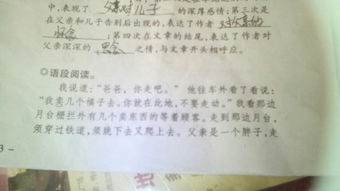 中,表现了 父亲对儿子 的深厚感情;第三次是
在父亲和儿子告别后出现的,表达了作者 对父亲的
怀念 ;第四次在文章的结尾,表达了作者对
父亲深深的 思念 之情,与文章开头相呼应。
◎语段阅读。
我说道:“爸爸,你走吧。”他往车外看了看说:
“我买几个橘子去。你就在此地,不要走动。”我看那边
月台栅栏外有几个卖东西的等着顾客。走到那边月台,
须穿过铁道,须跳下去又爬上去。父亲是一个胖子,走
3 -